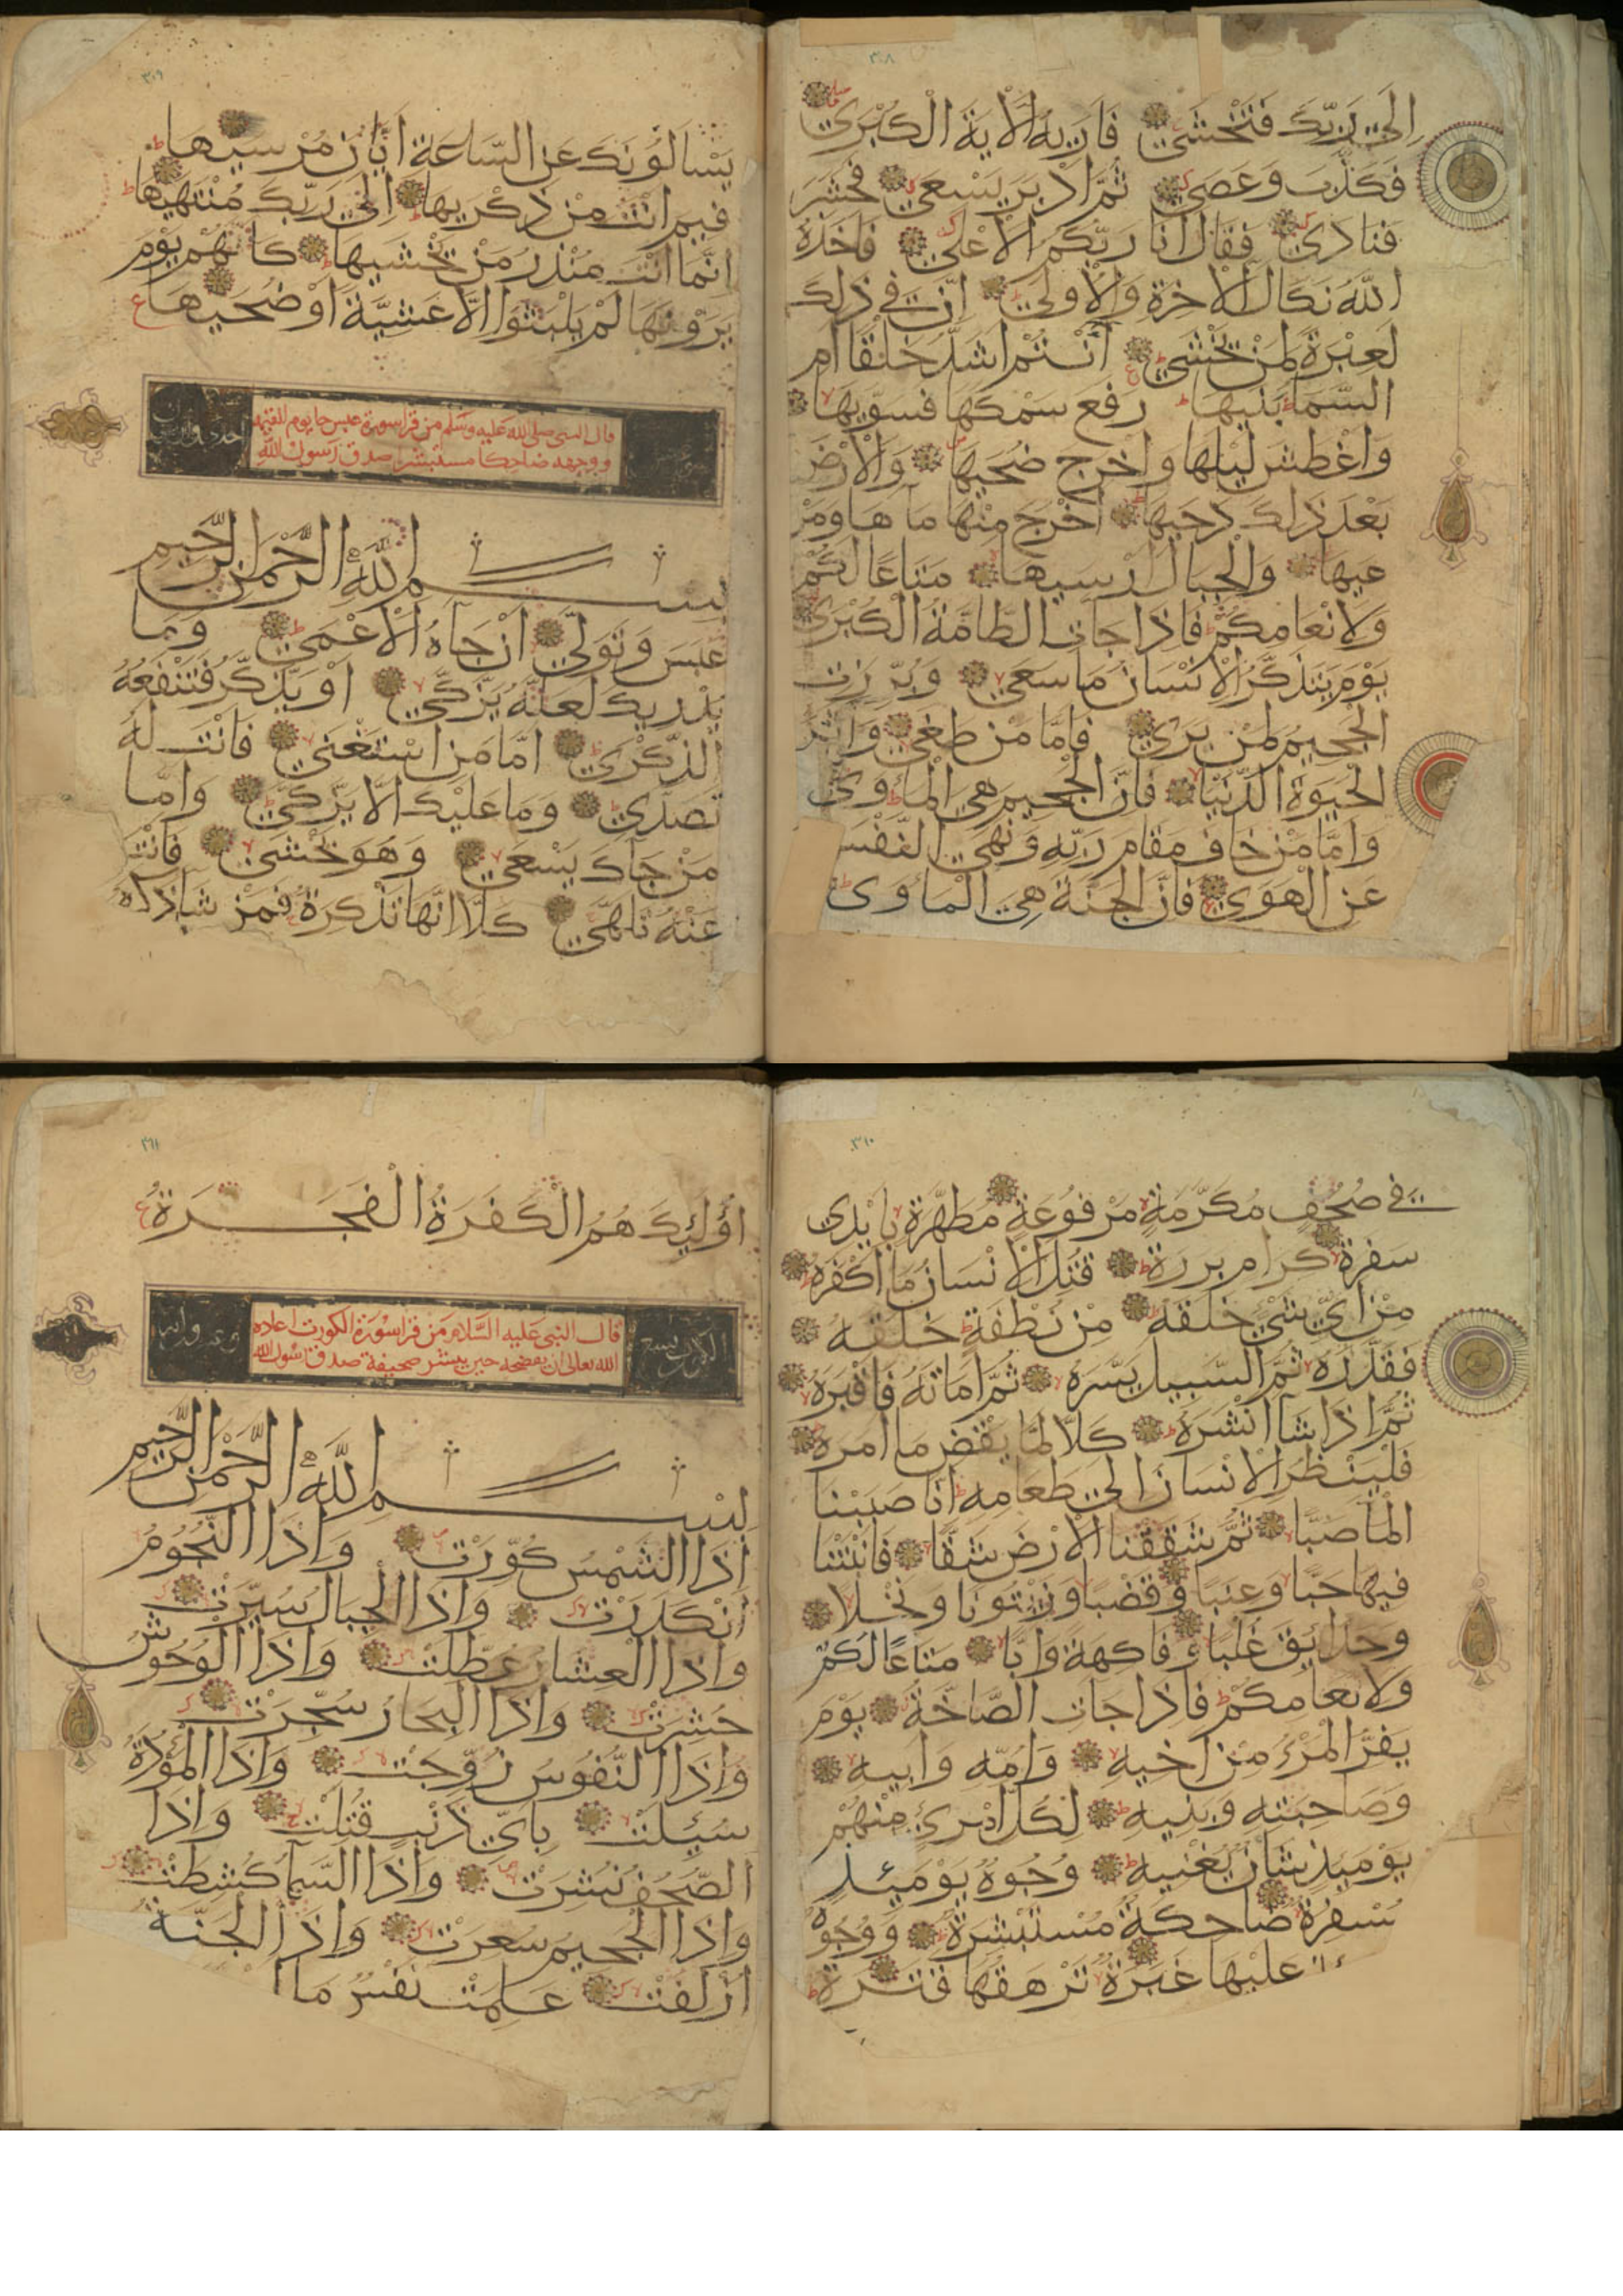 ٣٠٨
الى ربك فتخشى فاريه الاية الكبرى
فكذب وعصى ثم ادبر يسعى فحشر
فنادى فقال انا ربكم الاعلى فاخذه
الله نكال الاخرة والاولى ان في ذلك
لعبرة لمن يخشى ءانتم اشد خلقا ام
السماء بنيها رفع سمكها فسويها
واغطش ليلها واخرج ضحيها والارض
بعد ذلك دحيها اخرج منها ماها ومر
عيها والجبال ارسيها متاعا لكم
ولانعامكم فاذا جات الطامة الكبرى
يوم يتذكر الانسان ما سعى وبرزت
الجحيم لمن يرى فاما من طغى واثر
الحيوة الدنيا فان الجحيم هي الماوى
واما من خاف مقام ربه ونهى النفس
عن الهوى فان الجنة هي الماوى
٣٠٩
يسالونك عن الساعة ايان مرسيها
فيم انت من ذكريها الى ربك منتهيها
انما انت منذر من يخشيها كانهم يوم
يرونها لم يلبثوا الا عشية او ضحيها
قال النبي صلى الله عليه وسلم من قرا سورة عبس جا يوم القيمة
ووجهه ضاحكا مستبشرا صدق رسول الله
بسم الله الرحمن الرحيم
عبس وتولى ان جاه الاعمى وما
يدريك لعله يزكى او يذكر فتنفعه
الذكرى اما من استغنى فانت له
تصدى وما عليك الا يزكى واما
من جاك يسعى وهو يخشى فانت
عنه تلهى كلا انها تذكرة فمن شا ذكره
٣١٠
في صحف مكرمة مرفوعة مطهرة بايدى
سفرة كرام بررة قتل الانسان ما اكفره
من اي شي خلقه من نطفة خلقه
فقدره ثم السبيل يسره ثم اماته فاقبره
ثم اذا شا انشره كلا لما يقض ما امره
فلينظر الانسان الى طعامه انا صببنا
الما صبا ثم شققنا الارض شقا فانبتنا
فيها حبا وعنبا وقضبا وزيتونا ونخلا
وحدايق غلبا وفاكهة وابا متاعا لكم
ولانعامكم فاذا جات الصاخة يوم
يفر المرء من اخيه وامه وابيه
وصاحبته وبنيه لكل امرئ منهم
يوميذ شان يغنيه وجوه يوميذ
مسفرة ضاحكة مستبشرة ووجوه
عليها غبرة ترهقها قترة
٣١١
اوليك هم الكفرة الفجرة
قال النبي عليه السلام من قرا سورة الكورت اعاذه
الله تعالى ان يفضحه حين ينشر صحيفة صدق رسول الله
بسم الله الرحمن الرحيم
اذا الشمس كورت واذا النجوم
انكدرت واذا الجبال سيرت
واذا العشار عطلت واذا الوحوش
حشرت واذا البحار سجرت
واذا النفوس زوجت واذا الموؤدة
سيلت باي ذنب قتلت واذا
الصحف نشرت واذا السما كشطت
واذا الجحيم سعرت واذا الجنة
ازلفت علمت نفس ما ا